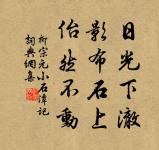 日光下澈
影布石上
佁然不動
柳宗元小石潭記
詞典網集